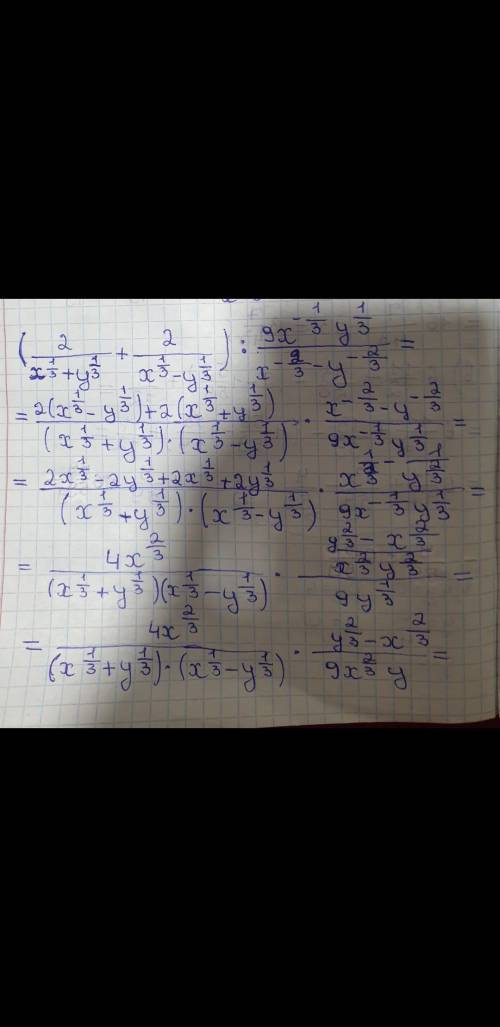 (2/(x^(1/3)+y^(1/3)) + 2/(x^(1/3)-y^(1/3))) : (9x^(-1/3) y^(1/3))/(x^(-2/3)-y^(-2/3)) =
= (2(x^(1/3)-y^(1/3))+2(x^(1/3)+y^(1/3)))/((x^(1/3)+y^(1/3))·(x^(1/3)-y^(1/3))) · (x^(-2/3)-y^(-2/3))/(9x^(-1/3) y^(1/3)) =
= (2x^(1/3)-2y^(1/3)+2x^(1/3)+2y^(1/3))/((x^(1/3)+y^(1/3))·(x^(1/3)-y^(1/3))) · /(9x^(-1/3) y^(1/3)) =
= 4x^(2/3)/((x^(1/3)+y^(1/3))(x^(1/3)-y^(1/3))) · ((y^(2/3)-x^(2/3))/(x^(2/3) y^(2/3)))/(9y^(1/3)) =
= 4x^(2/3)/((x^(1/3)+y^(1/3))·(x^(1/3)-y^(1/3))) · (y^(2/3)-x^(2/3))/(9x^(2/3) y) =